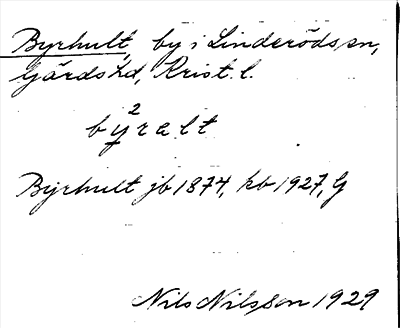 Byrhult, by i Linderöds sn,
Gärds hd, Krist. l.
by²ralt
Byrhult jb 1874, kb 1927, G
Nils Nilsson 1929